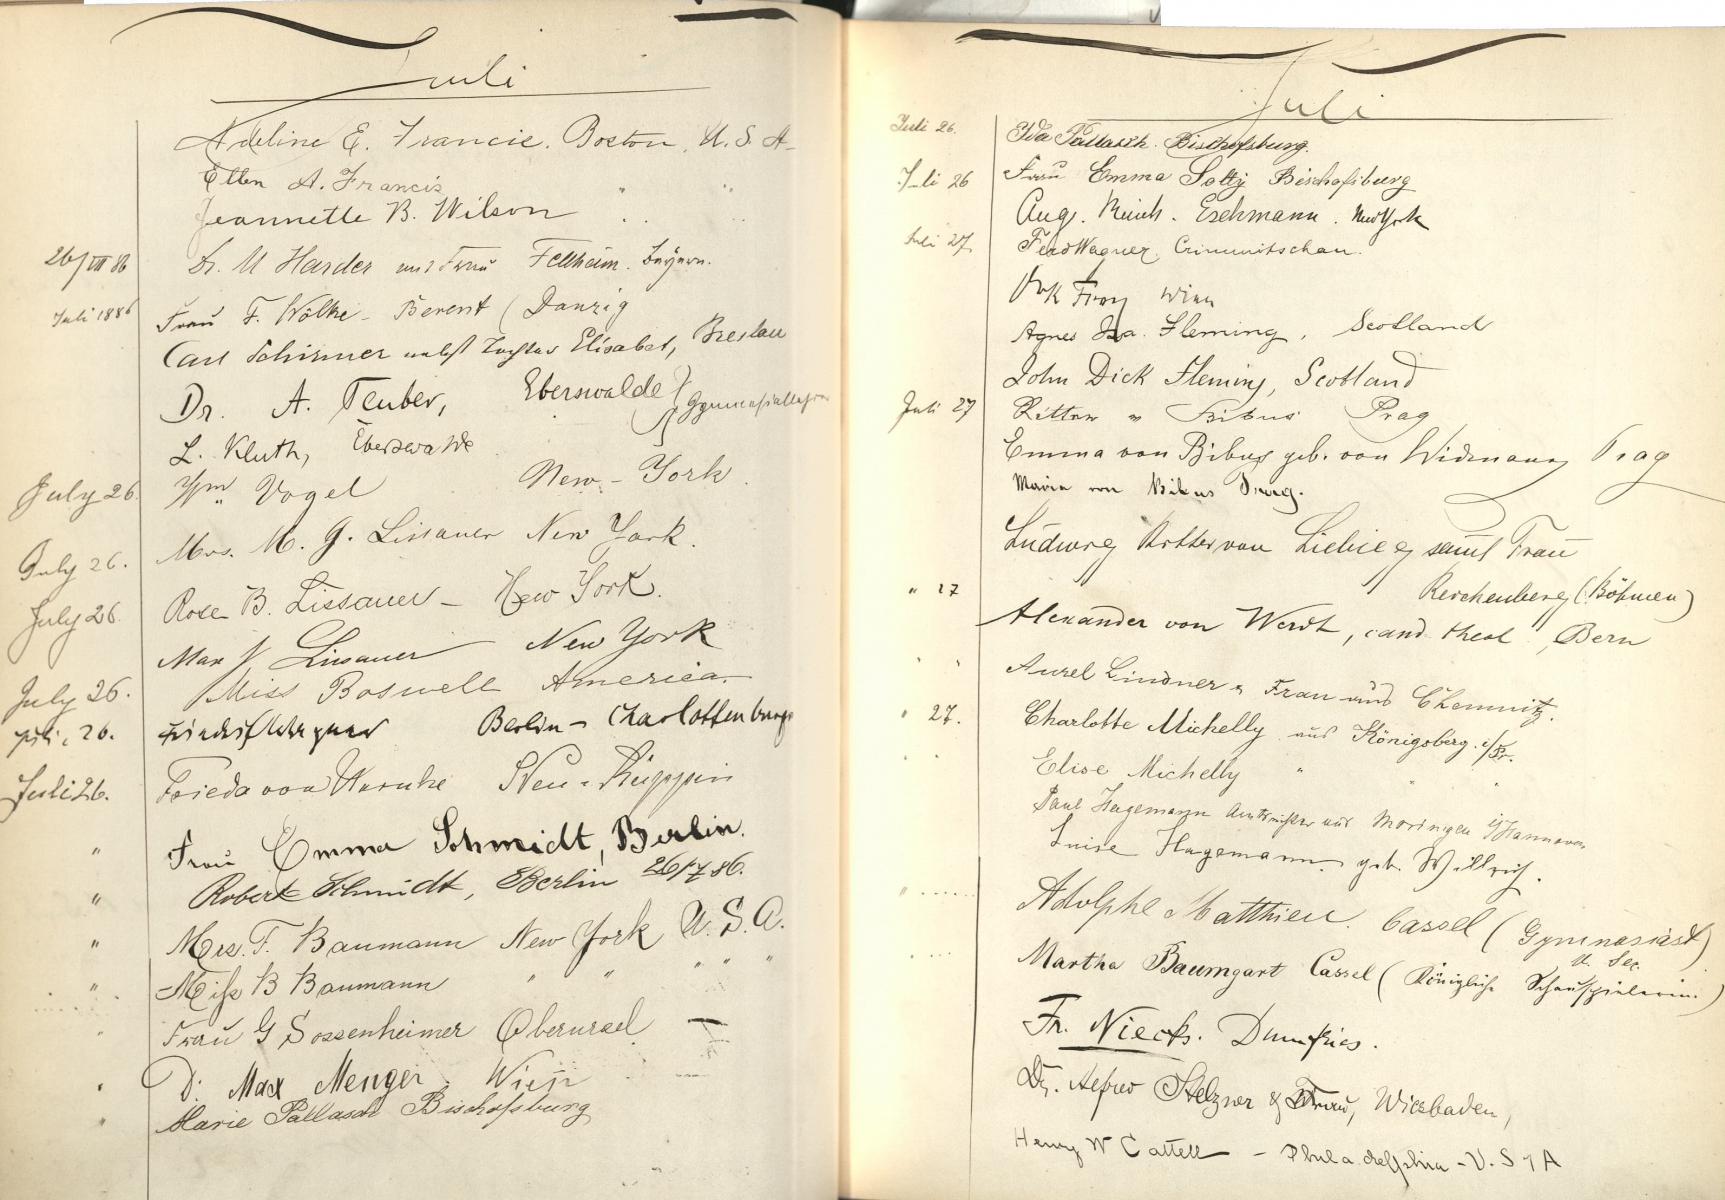 Juli
Adeline E. Francis. Boston, U. S. A
Ellen A. Francis " "
Jeannette B. Wilson " "
26/VII 86 Dr. M Harder und Frau Fellheim. Bayern.
Juli 1886 Frau F. Wölke - Berent (Danzig
Carl Schirmer nebst Tochter Elisabet, Breslau
Dr. A. Teuber, Eberswalde } Gymnasiallehrer
L. Kluth, Eberswalde
July 26. Wm Vogel New-York
July 26. Mrs. M. G. Lissauer New York.
July 26 Rose B. Lissauer - New York.
Max Lissauer New York
July 26. Miss Boswell America.
Juli. 26. Berlin - Charlottenburg
Juli 26. Frieda von Neu-Ruppin
" Frau Emma Schmidt, Berlin.
" Robert Schmidt, Berlin 26/7 86.
" Mrs. F. Baumann New York U. S. A.
" Miss B Baumann " " " " "
" Frau G Sossenheimer Oberursel
" Dr. Max Menger. Wien
" Marie Pallasch Bischofsburg
Juli
Juli 26. Ida Pallasch. Bischofsburg.
Juli 26 Frau Emma Bischofsburg
Aug. Eschmann. New York
Juli 27 Ferd Wagner. Crimmitschau.
Wien
Agnes Fleming, Scotland
John Dick Fleming, Scotland
Juli 27 Ritter v Bibus Prag
Emma von Bibus geb. von Widmann Prag
Maria von Bibus Prag.
Ludwig Ritter von Liebieg samt Frau
Reichenberg (Böhmen)
" 27 Alexander von Werdt, cand. theol, Bern
" " Aurel Lindner u Frau aus Chemnitz.
" 27. Charlotte Michelly aus Königsberg i/Pr.
" " Elise Michelly " " "
Paul Hagemann Amtsrichter aus Moringen i/Hannover
Luise Hagemann geb. Willrich.
" Adolphe Matthieu. Cassel (Gymnasiast)
U. Sec.
" Martha Baumgart Cassel (Königliche Schauspielerin.)
Fr. Niecks. Dumfries.
Dr. Alfred Stelzner & Frau, Wiesbaden,
Henry W Cattell - Philadelphia - U. S A